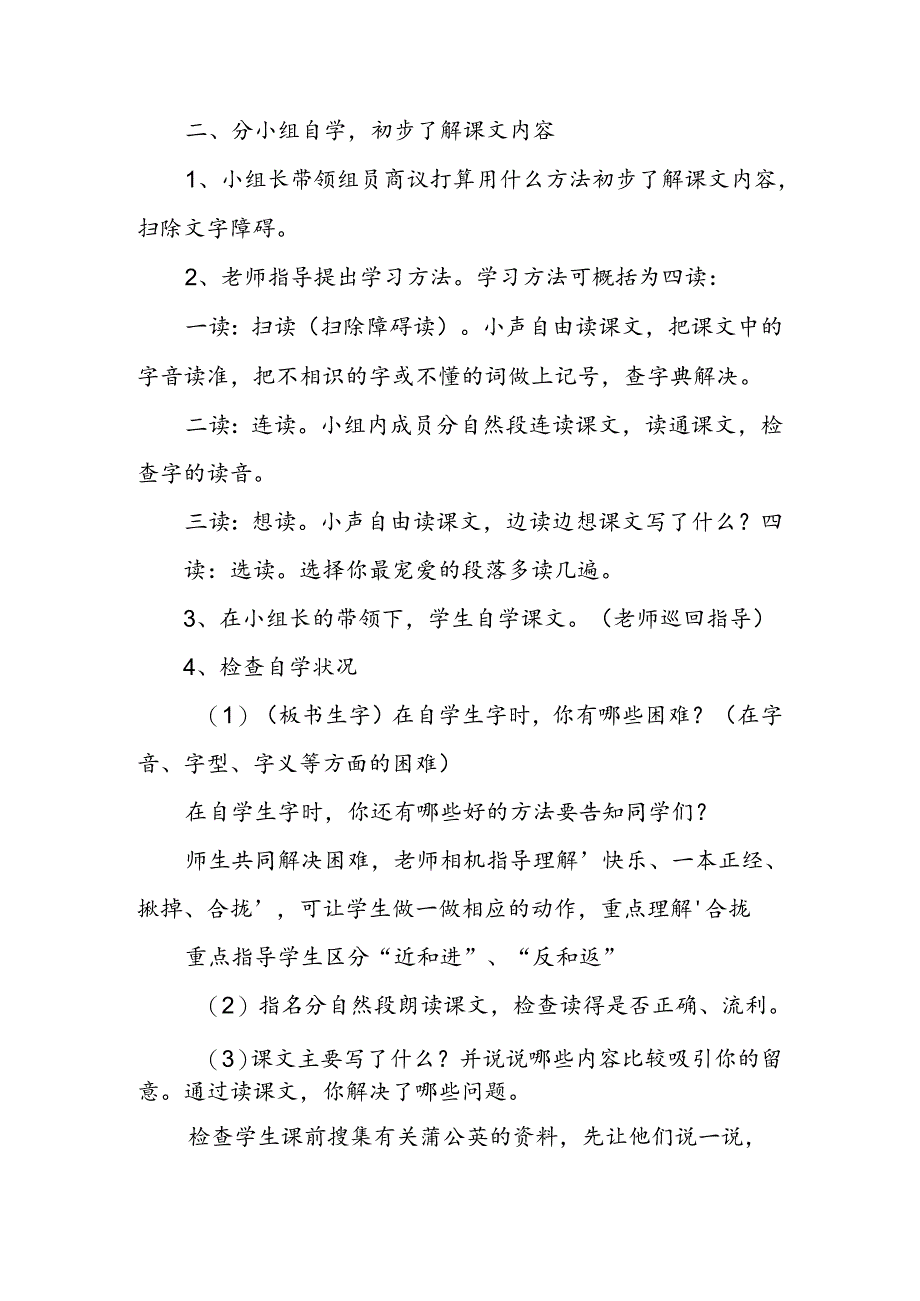 二、分小组自学，初步了解课文内容
1、小组长带领组员商议打算用什么方法初步了解课文内容，
扫除文字障碍。
2、老师指导提出学习方法。学习方法可概括为四读：
一读：扫读（扫除障碍读）。小声自由读课文，把课文中的
字音读准，把不相识的字或不懂的词做上记号，查字典解决。
二读：连读。小组内成员分自然段连读课文，读通课文，检
查字的读音。
三读：想读。小声自由读课文，边读边想课文写了什么？四
读：选读。选择你最宠爱的段落多读几遍。
3、在小组长的带领下，学生自学课文。（老师巡回指导）
4、检查自学状况
（1）（板书生字）在自学生字时，你有哪些困难？（在字
音、字型、字义等方面的困难）
在自学生字时，你还有哪些好的方法要告知同学们？
师生共同解决困难，老师相机指导理解’快乐、一本正经、
揪掉、合拢’，可让学生做一做相应的动作，重点理解'合拢
重点指导学生区分“近和进”、“反和返”
（2）指名分自然段朗读课文，检查读得是否正确、流利。
（3)课文主要写了什么？并说说哪些内容比较吸引你的留
意。通过读课文，你解决了哪些问题。
检查学生课前搜集有关蒲公英的资料，先让他们说一说，